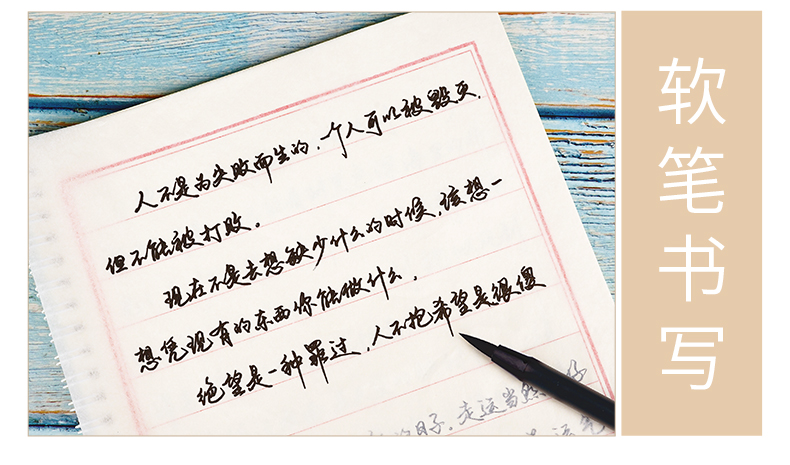 人不是为失败而生的，一个人可以被毁灭，
但不能被打败。
现在不是去想缺少什么的时候，该想一
想凭现有的东西你能做什么，
绝望是一种罪过，人不抱希望是很傻
的日子，走运当然 好
软笔书写